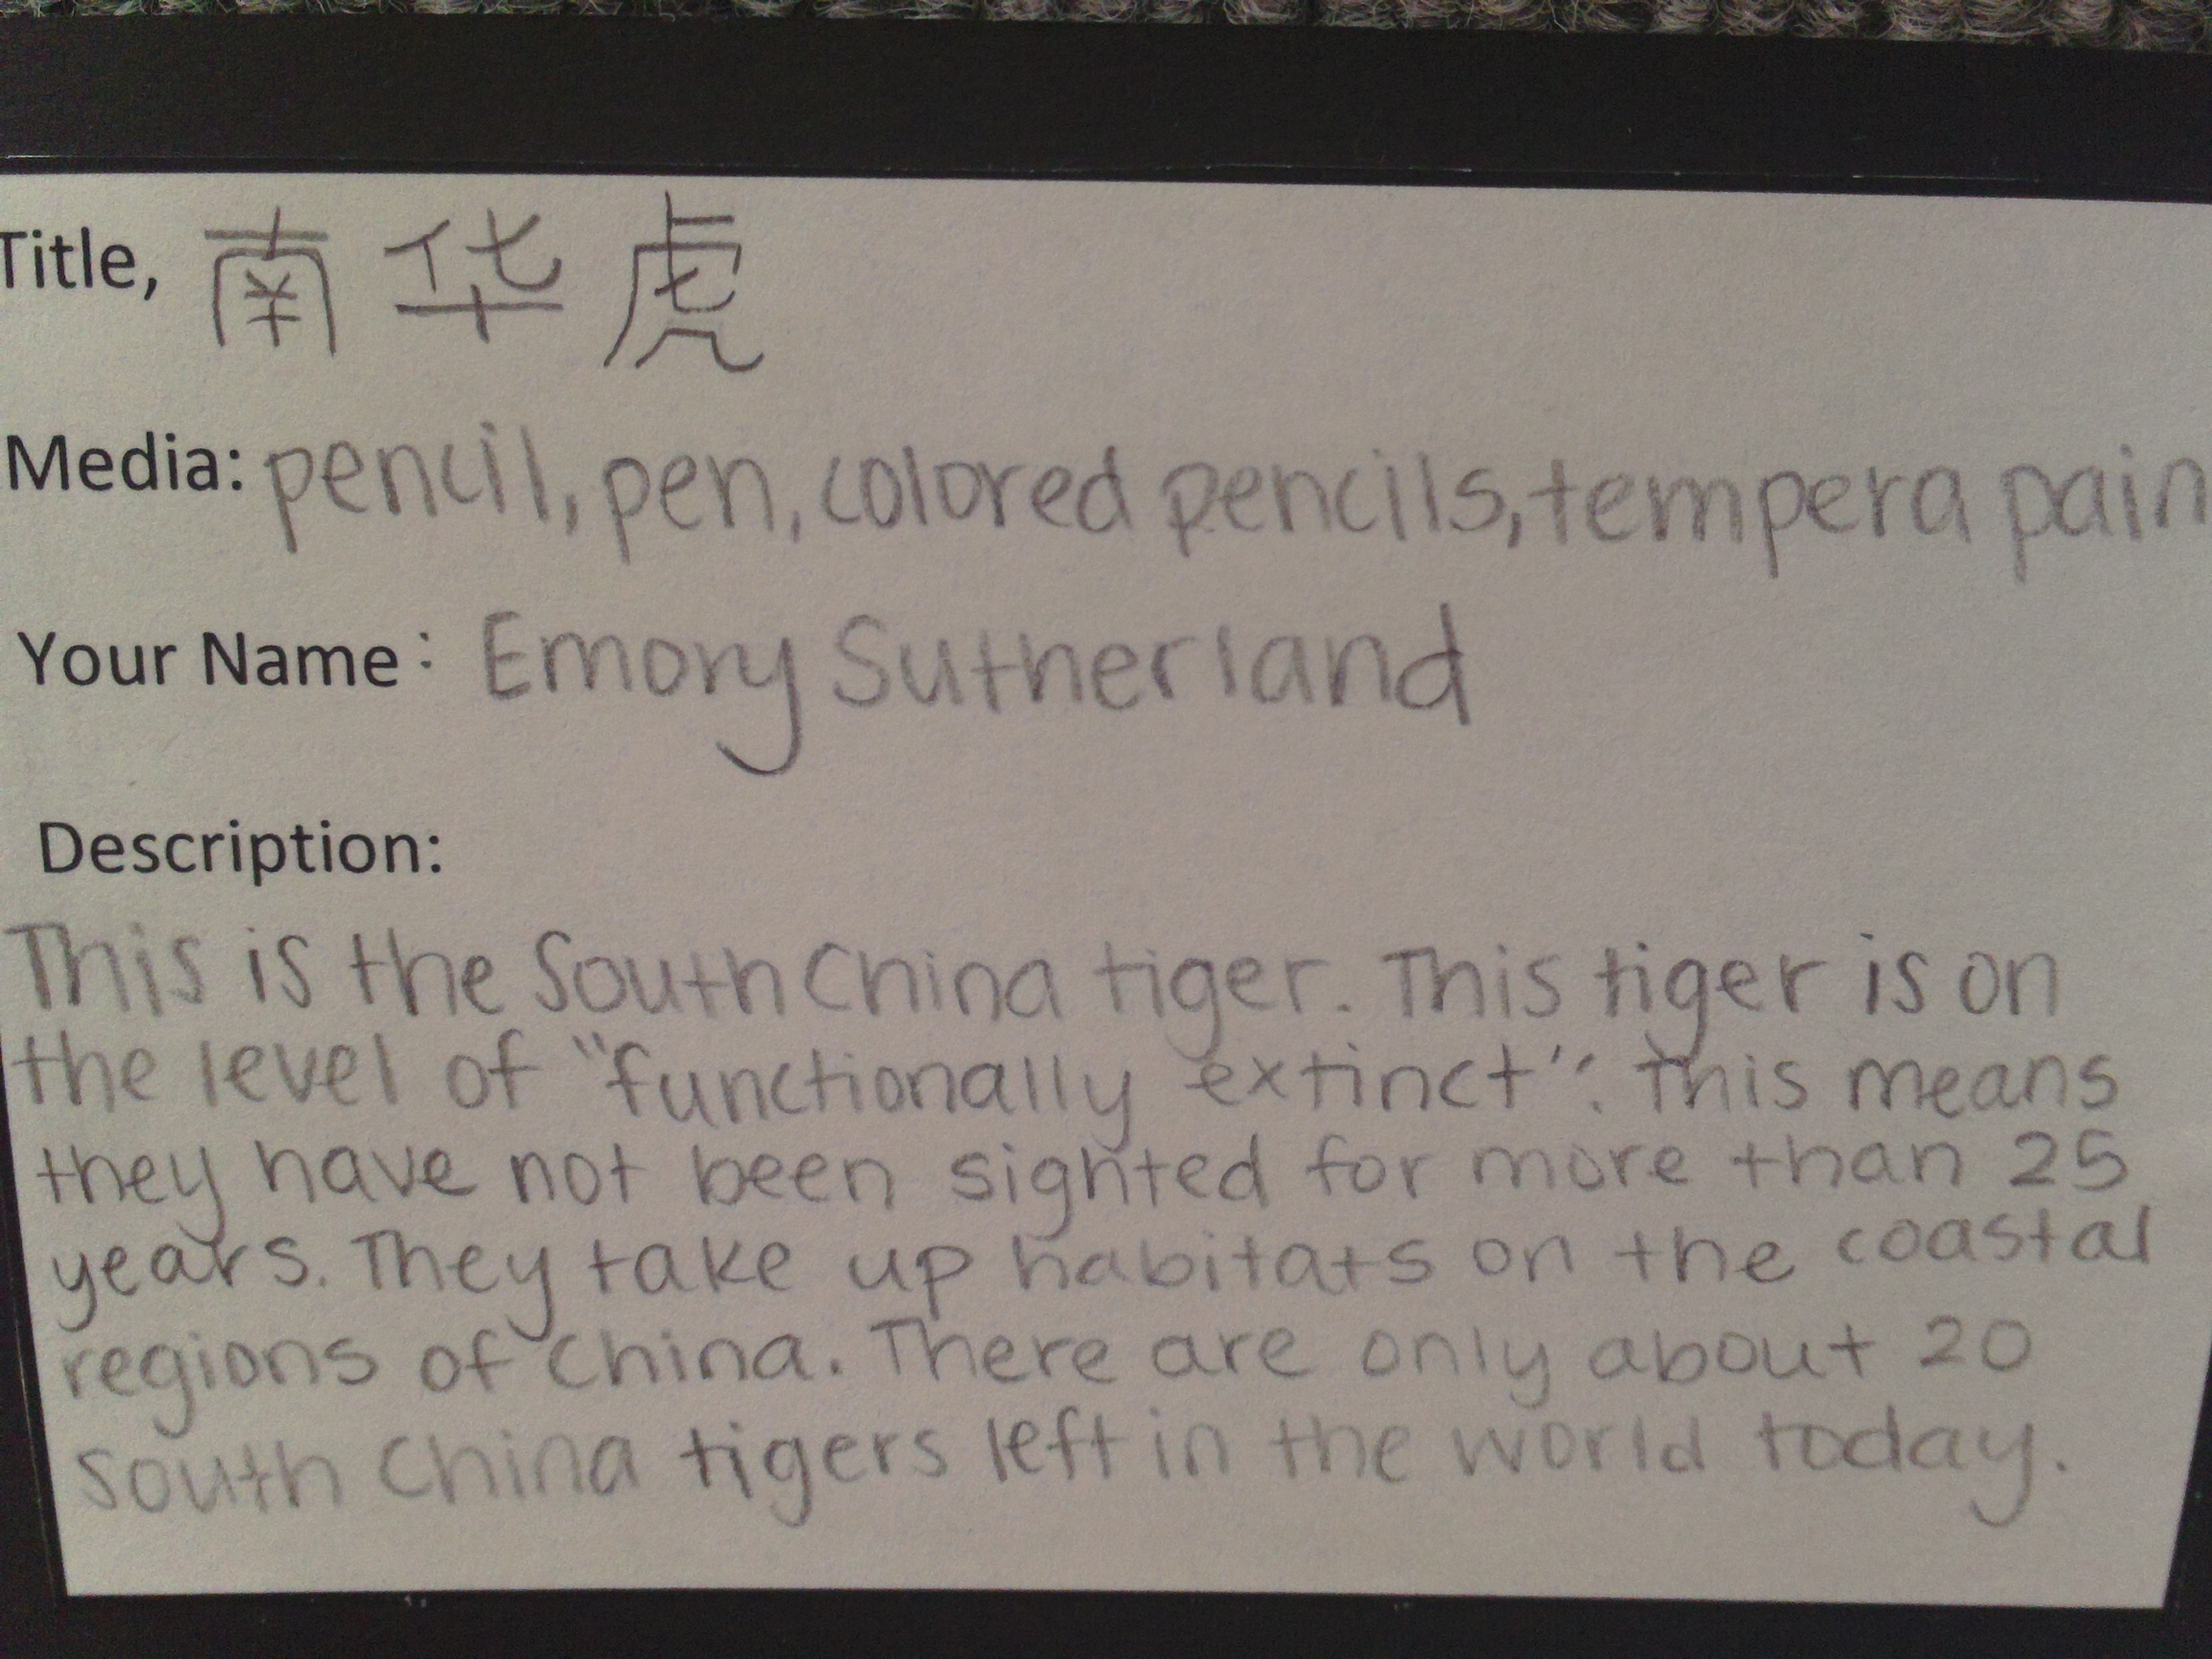 Title, 南华虎
Media: pencil, pen, colored pencils, tempera pain
Your Name: Emory Sutherland
Description:
This is the South China tiger. This tiger is on
the level of "functionally extinct". This means
they have not been sighted for more than 25
years. They take up habitats on the coastal
regions of China. There are only about 20
South China tigers left in the world today.